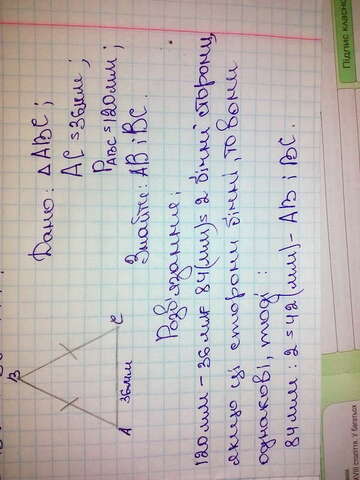 Дано: △ABC;
AC = 36мм;
P ABC = 120мм;
Знайти: AB і BC.
B
A
C
36мм
Розв'язання:
120мм - 36мм = 84(мм) = 2 бічні сторони,
якщо ці сторони бічні, то вони
однакові, тоді:
84мм : 2 = 42(мм) - AB і BC.
Підпис класно